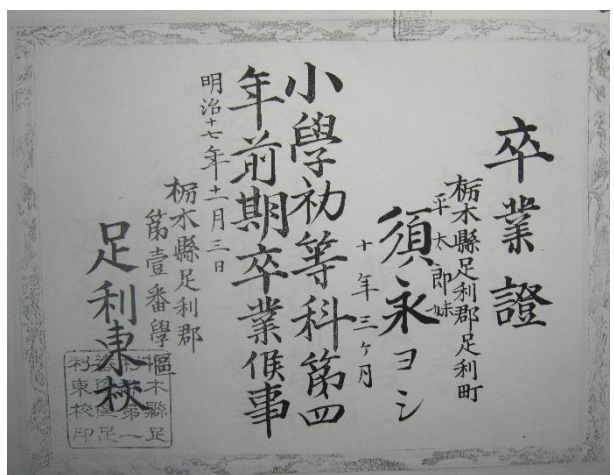 卒業證
栃木縣足利郡足利町
平太郎妹
須永ヨシ
十年三ヶ月
小學初等科第四
年前期卒業候事
明治十七年十一月三日
栃木縣足利郡
第壹番學區
足利東校
栃木縣足
利東校印